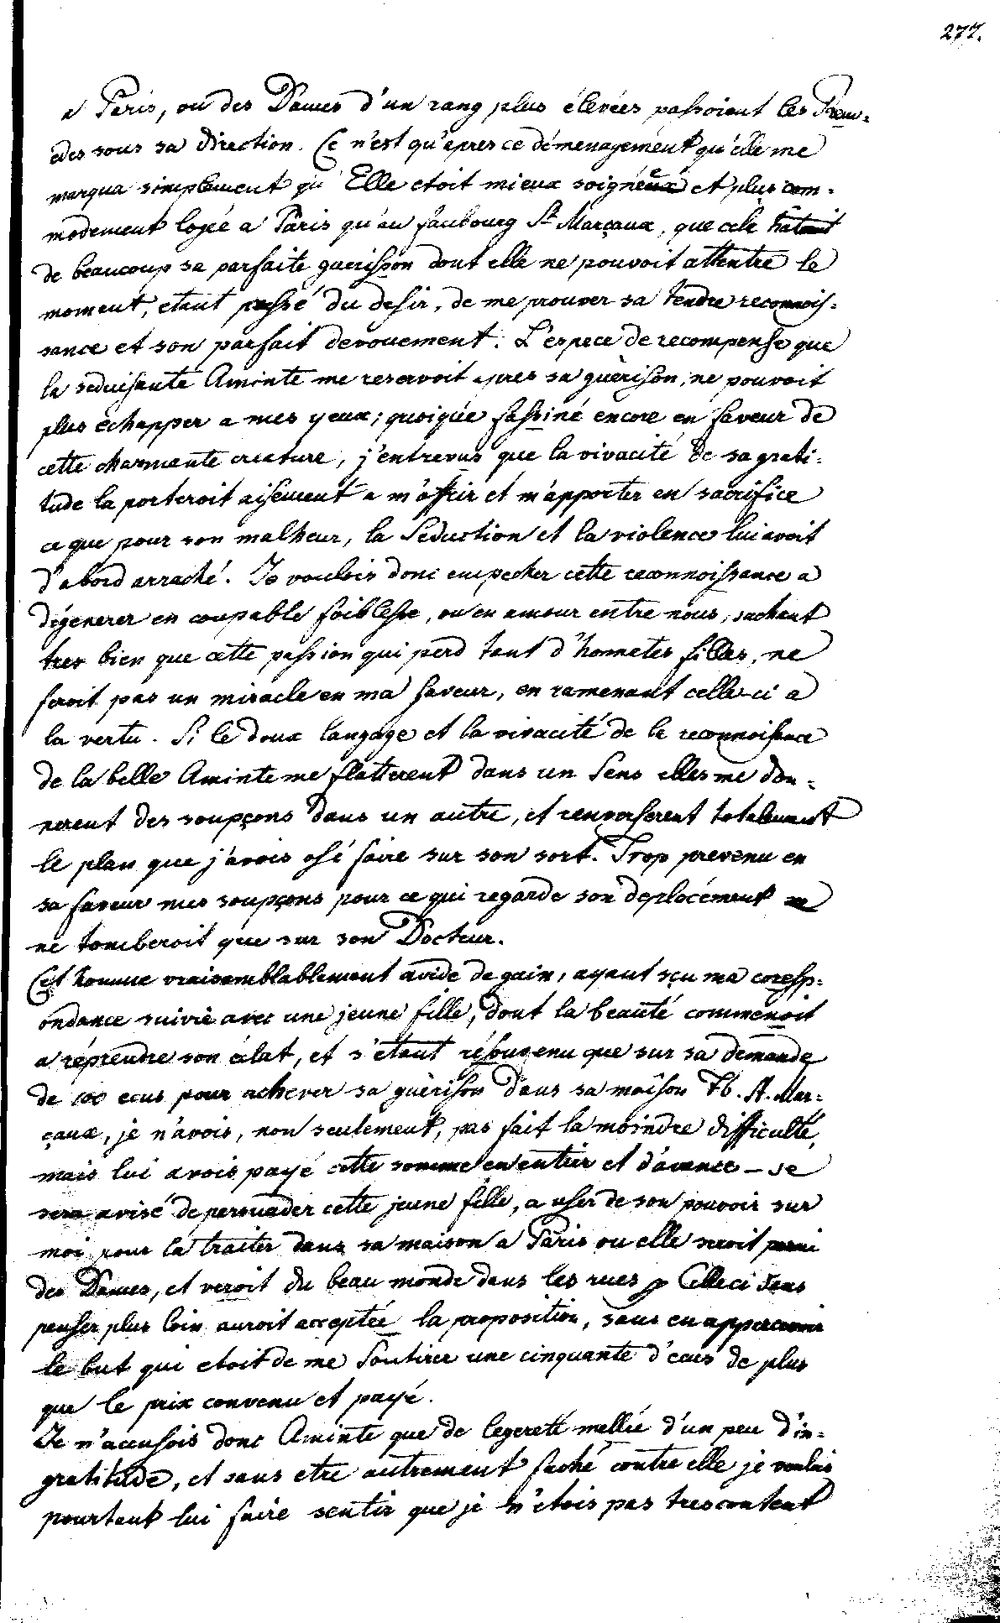 277.
a Paris, ou des Dames d'un rang plus élevées passoient les Rémé-
des sous sa direction. Ce n'est qu'epres ce déménagement qu'elle me
marqua simplement qu'Elle etoit mieux soignée et plus com-
modement logée a Paris qu'au faubourg St. Marçaux, que cela hatoit
de beaucoup sa parfaite guerison dont elle ne pouvoit attentre le
moment, etant pressé du desir, de me prouver sa tendre reconnois-
sance et son parfait devouement. L'espece de recompense que
la seduisante Aminte me reservoit apres sa guèrison, ne pouvoit
plus èchapper a mes yeux; quoiquée fassiné encore en faveur de
cette charmante creature, j'entrevus que la vivacité de sa grati-
tude la porteroit aisement a m'offrir et m'apporter en sacrifice
ce que pour son malheur, la Seduction et la violence lui avoit
d'abord arraché. Je voulois donc empecher cette reconnoissance a
dégenerer en coupable foiblesse, ou en amour entre nous, sachant
tres bien que cette passion qui perd tant d'honnetes filles, ne
feroit pas un miracle en ma faveur, en ramenant celle-ci a
la vertu. Si le doux langage et la vivacité de le reconnoissance
de la belle Aminte me flatterent dans un Sens elles me don-
nerent des soupçons dans un autre, et renverserent totalement
le plan que j'avois osé faire sur son sort. Trop prevenu en
sa faveur mes soupçons pour ce qui regarde son deplacément
ne tomberoit que sur son Docteur.
Cet homme vraisemblablement avide de gain, ayant sçu ma coresp-
ondance suivie avec une jeune fille, dont la beauté commençoit
a réprendre son éclat, et s'etant résouvenu que sur sa demande
de 100 ecus pour achever sa guèrison dans sa maison Fb. St. Mar-
çaux, je n'avois, non seulement, pas fait la moindre difficulté,
mais lui avois payé cette somme en entier et d'avance – se
sera avisé de persuader cette jeune fille, a user de son pouvoir sur
moi pour la traiter dans sa maison a Paris ou elle seroit parmi
des Dames, et veroit du beau monde dans les rues Celle ci sans
penser plus loin auroit acceptée la proposition, sans en appercevoir
le but qui etoit de me Soutirer une cinquante d'ecus de plus
que le prix convenu et payé.
Je n'accusois donc Aminte que de legereté mellée d'un peu d'in-
gratitude, et sans etre autrement faché contre elle je voulois
pourtant lui faire sentir que je n'etois pas tres content